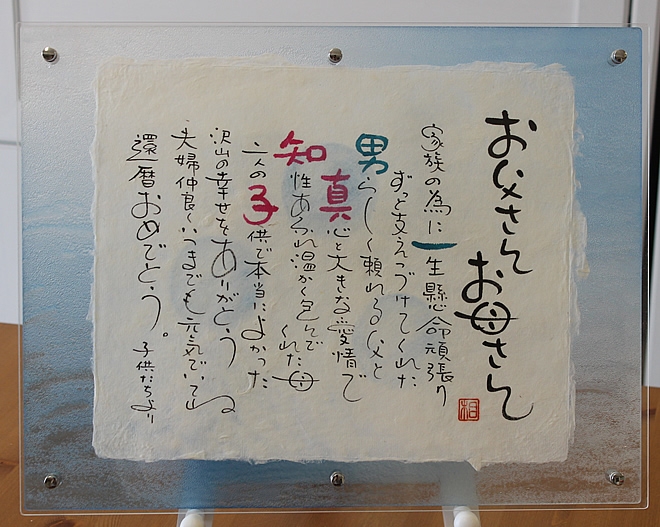 お父さん
お母さん
家族の為に一生懸命頑張り
ずっと支えつづけてくれた
男らしく頼れる父と
真心と大きな愛情で
知性あふれ温かく包んで
くれた母
二人の子供で本当によかった
沢山の幸せをありがとう
夫婦仲良くいつまでも元気でいてね
還暦おめでとう。
子供たちより